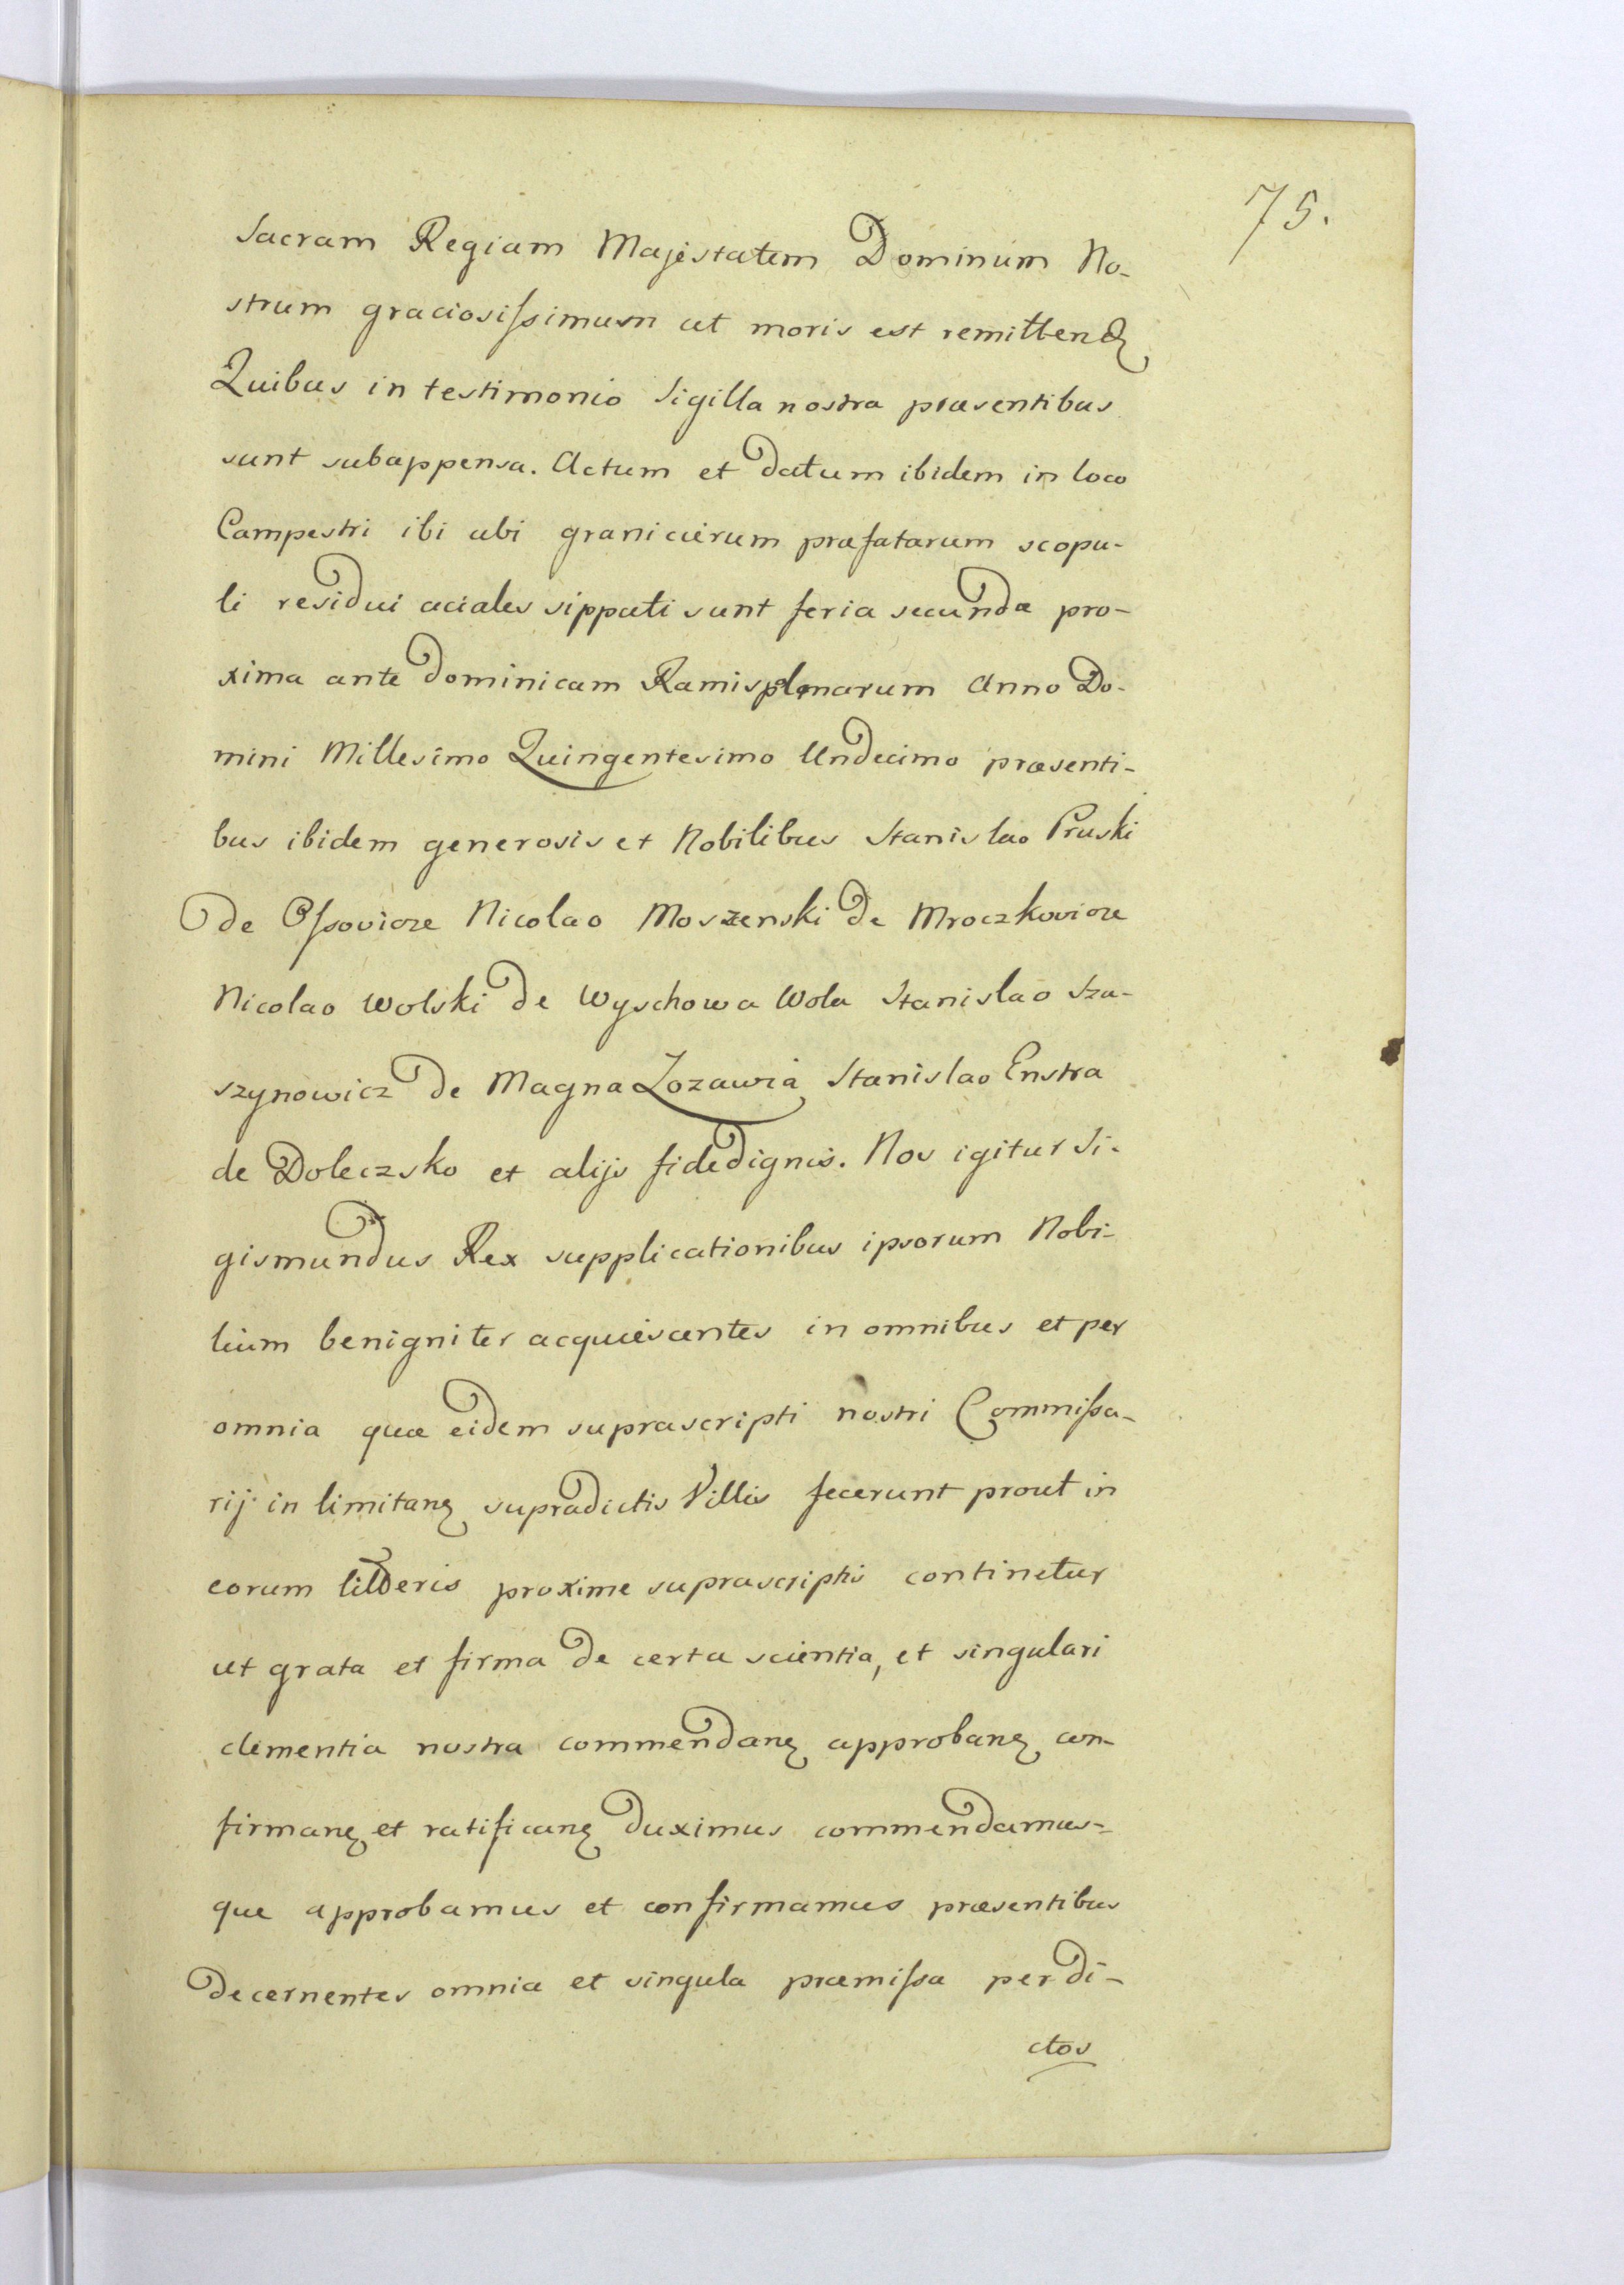 75.
Sacram Regiam Majestatem Dominum No-
strum graciosissimum ut moris est remittend
Quibus in testimonio Sigilla nostra præsentibus
sunt subappensa. Actum et datum ibidem in loco
Campestri ibi ubi granicierum præfatarum scopu-
li residui aciales sippati sunt feria secunda pro-
xima ante Dominicam Ramisplmarum Anno Do-
mini Millesimo Quingentesimo Undecimo præsenti-
bus ibidem generosis et Nobilibus Stanislao Pruski
de Ossovicze Nicolao Moszenski de Mroczkovicze
Nicolao Wolski de Wyschowa Wola Stanislao Sza-
szynowicz de Magna Lozawia Stanislao Enstra
de Doleczsko et alijs fidedignis. Nos igitur Si-
gismundus Rex supplicationibus ipsorum Nobi-
lium benigniter acquiescentes in omnibus et per
omnia quæ eidem suprascripti nostri Commissa-
rij in limitanȩ supradictis Villis fecerunt prout in
eorum litteris proxime suprascriptis continetur
ut grata et firma de certa scientia, et singulari
clementia nostra commendanȩ approbanȩ con-
firmanȩ et ratificanȩ duximus commendamus-
que approbamus et confirmamus præsentibus
Decernentes omnia et singula præmissa per di-
ctos